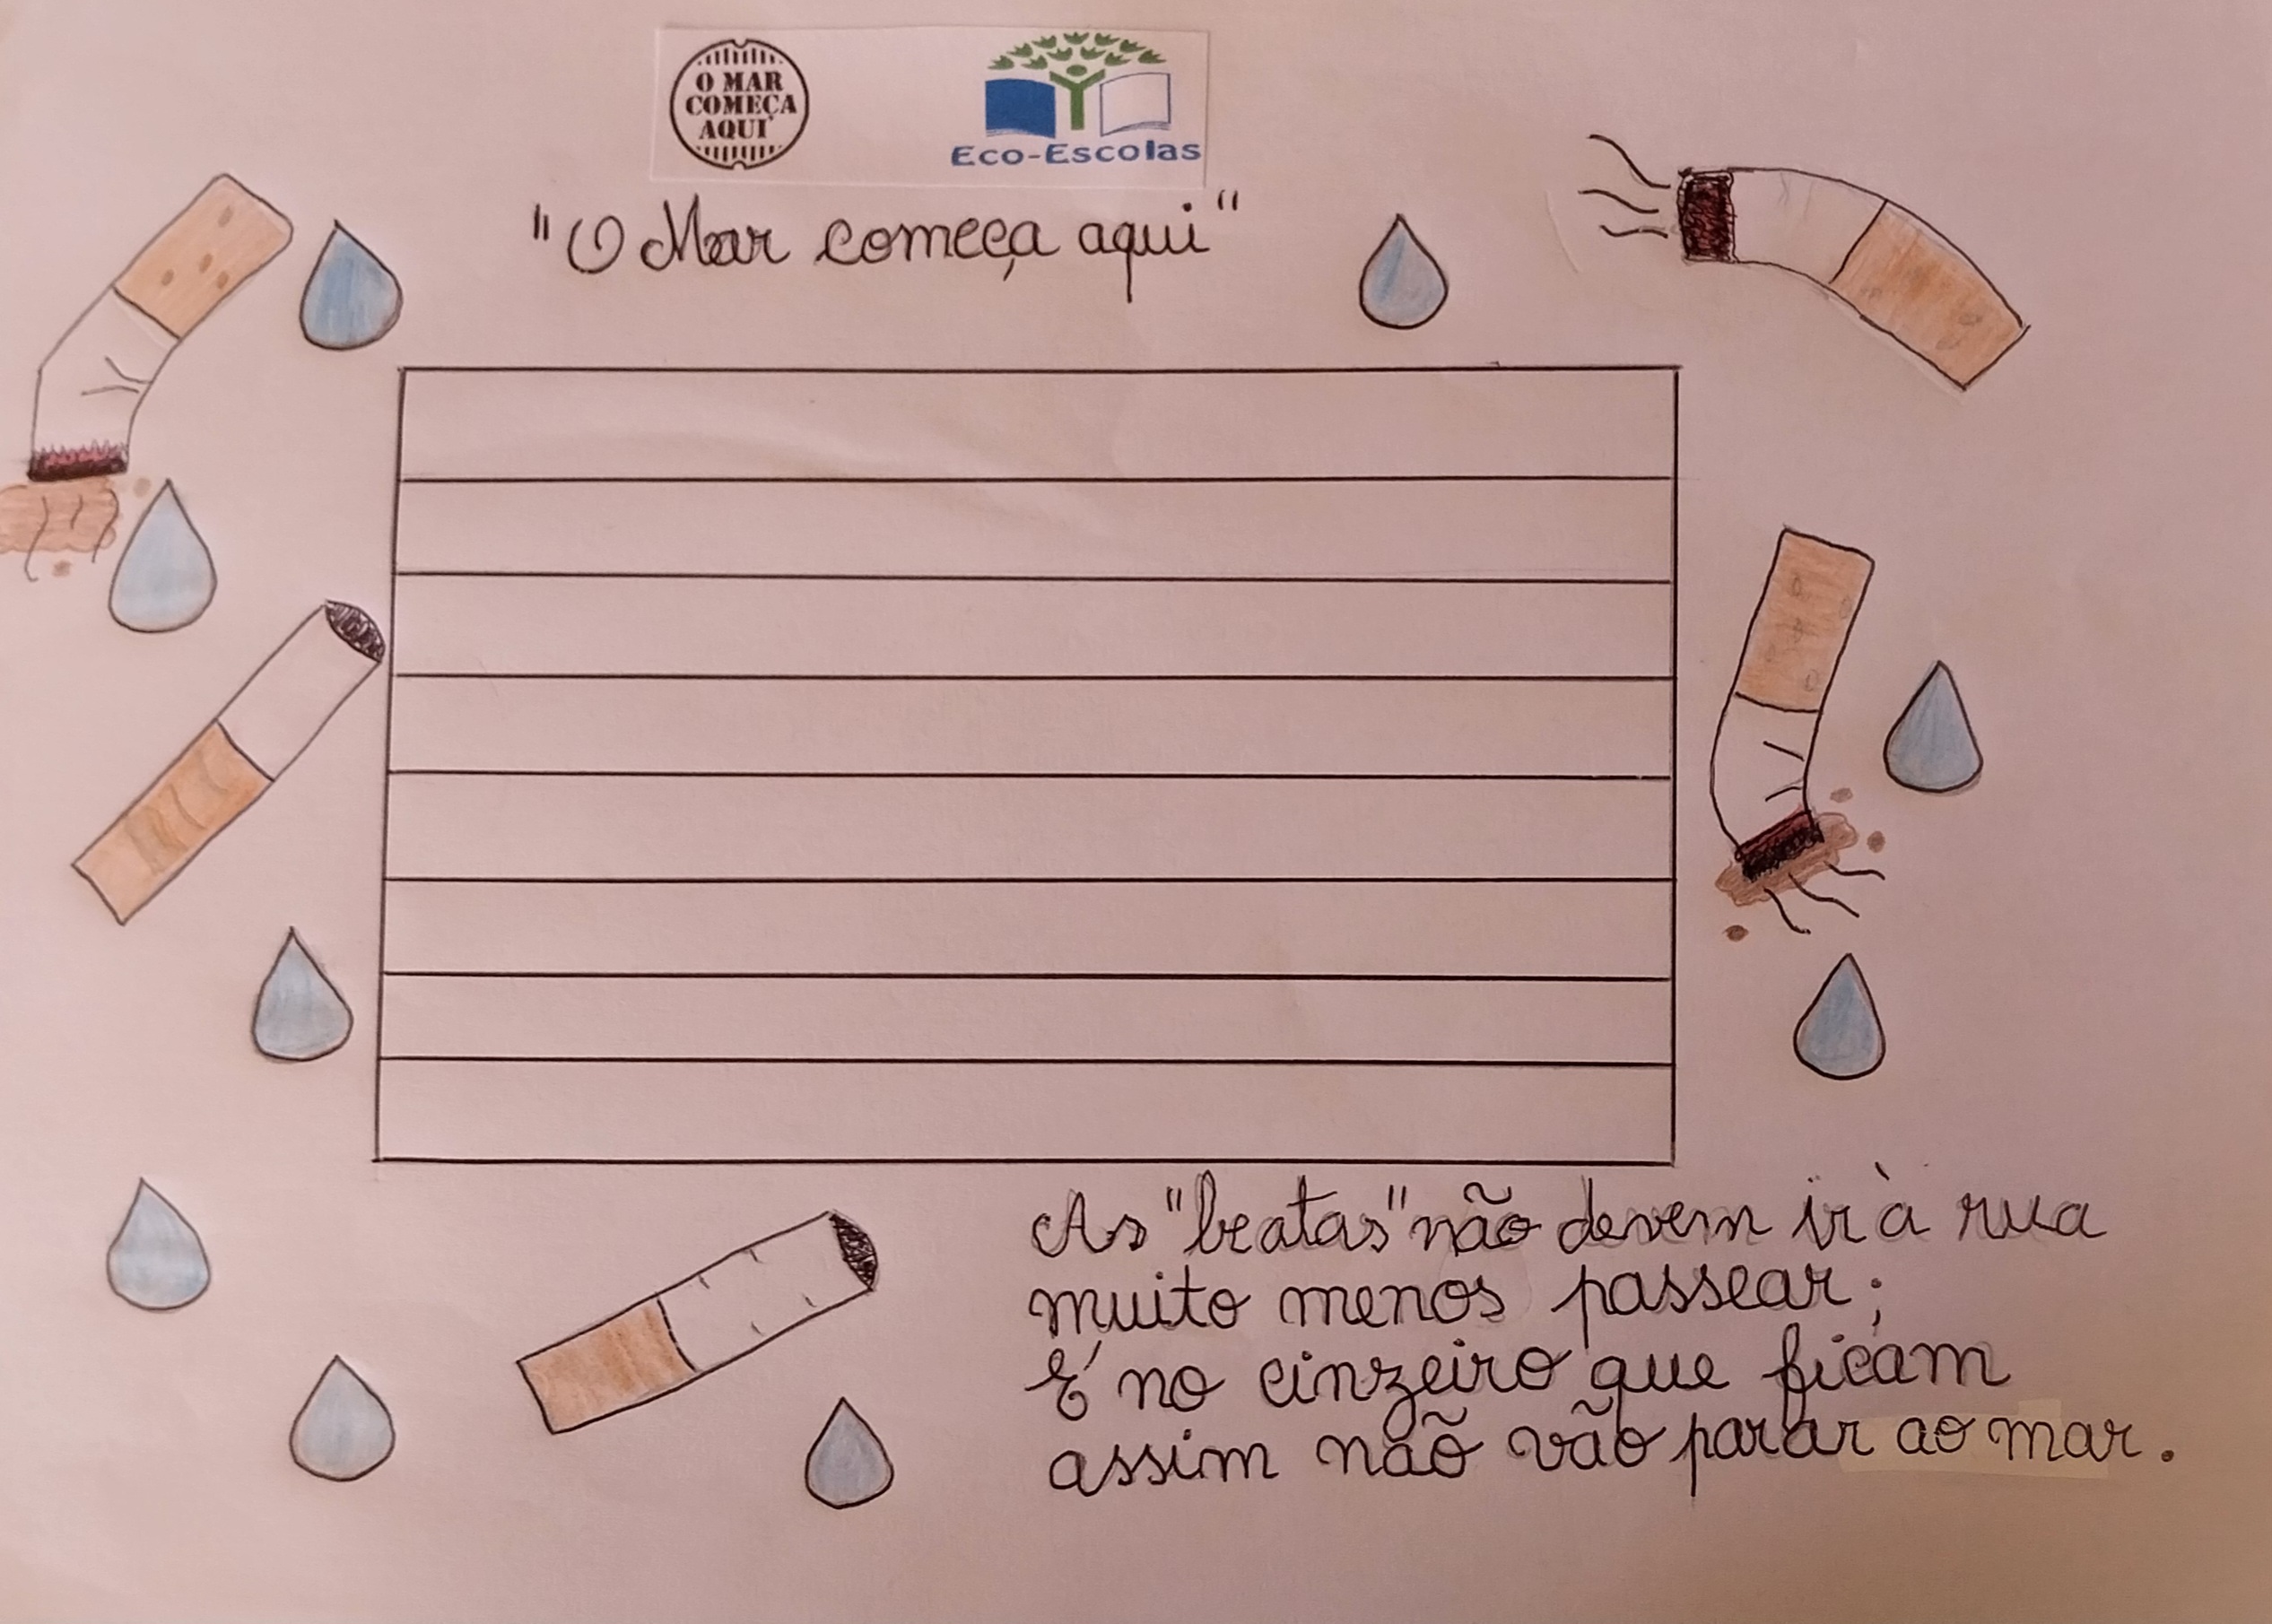 O MAR
COMEÇA
AQUI
Eco-Escolas
"O Mar começa aqui"
As "beatas" não devem ir à rua
muito menos passear;
É no cinzeiro que ficam
assim não vão parar ao mar.